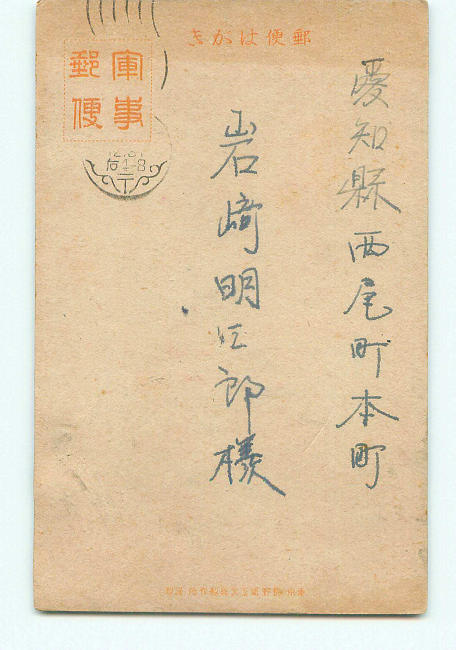 郵便はがき
軍事
郵便
后4-8
愛知縣西尾町本町
岩崎明治郎様